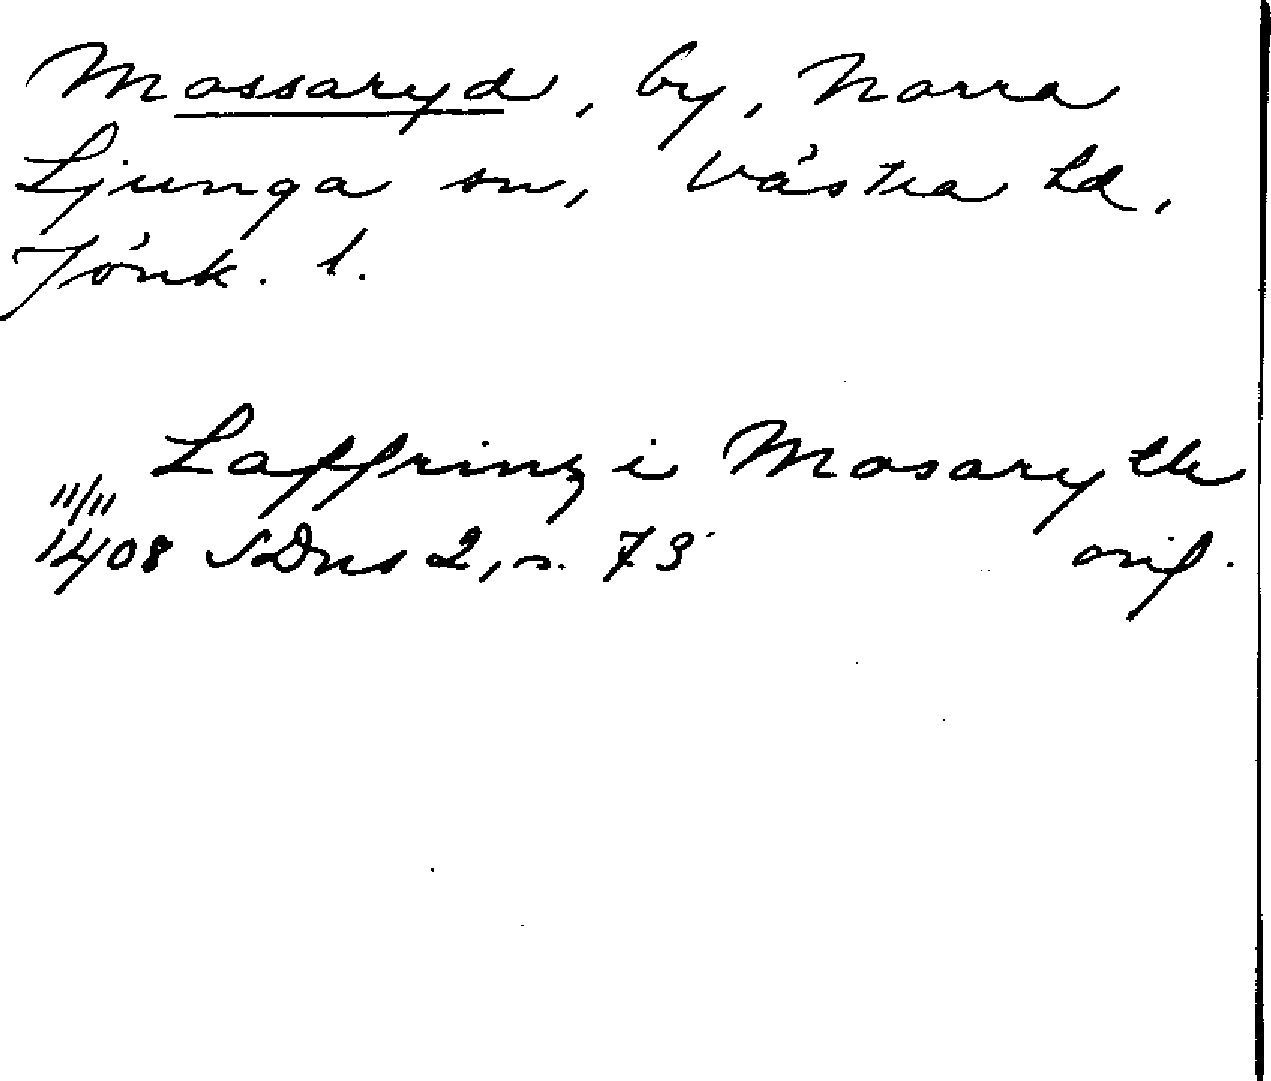 Mossaryd, by, Norra
Ljunga sn, Västra hd,
Jönk. l.
Laffrinz i Mosaryth
11/11
1408 SDns 2, s. 73 orig.